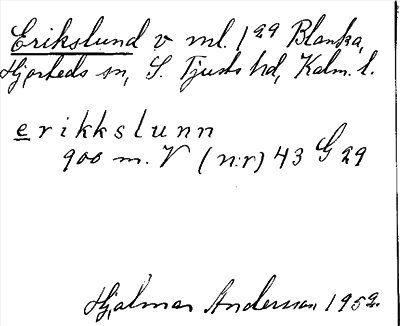 Erikslund v ml. 1 29 Blanka,
Hjorteds sn, S. Tjusts hd, Kalm. l.
erikkslunn
900 m. V (n:r) 43 G 29
Hjalmar Anderson 1952.